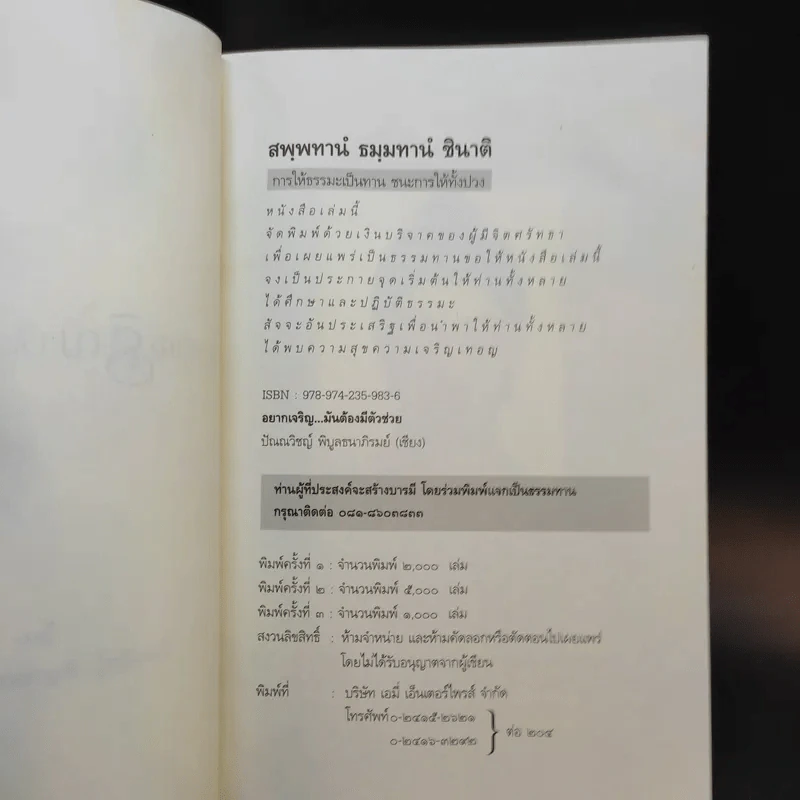 สพฺพทานํ ธมฺมทานํ ชินาติ
การให้ธรรมะเป็นทาน ชนะการให้ทั้งปวง
หนังสือเล่มนี้
จัดพิมพ์ด้วยเงินบริจาคของผู้มีจิตศรัทธา
เพื่อเผยแพร่เป็นธรรมทานขอให้หนังสือเล่มนี้
จงเป็นประกายจุดเริ่มต้นให้ท่านทั้งหลาย
ได้ศึกษาและปฏิบัติธรรมะ
สัจจะอันประเสริฐเพื่อนำพาให้ท่านทั้งหลาย
ได้พบความสุขความเจริญเทอญ
ISBN : 978-974-235-983-6
อยากเจริญ...มันต้องมีตัวช่วย
ปัณณวิชญ์ พิบูลธนาภิรมย์ (เชียง)
ท่านผู้ที่ประสงค์จะสร้างบารมี โดยร่วมพิมพ์แจกเป็นธรรมทาน
กรุณาติดต่อ ๐๘๑-๘๖๐๓๘๓๓
พิมพ์ครั้งที่ ๑ : จำนวนพิมพ์ ๒,๐๐๐ เล่ม
พิมพ์ครั้งที่ ๒ : จำนวนพิมพ์ ๕,๐๐๐ เล่ม
พิมพ์ครั้งที่ ๓ : จำนวนพิมพ์ ๑,๐๐๐ เล่ม
สงวนลิขสิทธิ์ : ห้ามจำหน่าย และห้ามคัดลอกหรือตัดตอนไปเผยแพร่
โดยไม่ได้รับอนุญาตจากผู้เขียน
พิมพ์ที่ : บริษัท เอมี่ เอ็นเตอร์ไพรส์ จำกัด
โทรศัพท์ ๐-๒๔๑๕-๒๖๒๑
๐-๒๔๑๖-๓๒๙๒ } ต่อ ๒๐๔